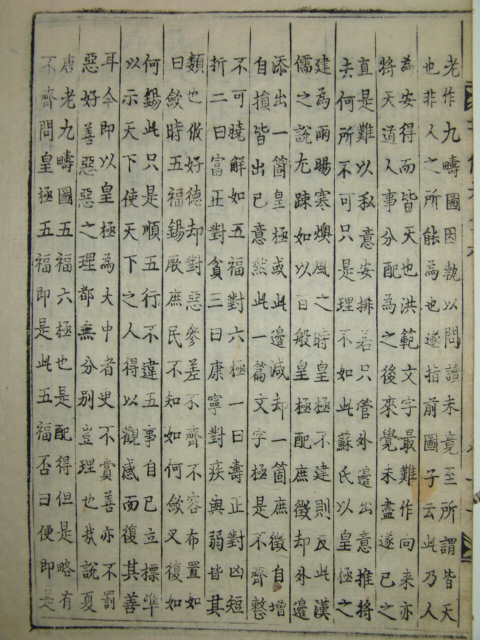 老作九疇圖因執以問讀未竟至所謂皆天
也非人之所能為也遂指前圖子云此乃人
為安得而皆天也洪範文字最難作向來亦
將天道人事分配為之後來覺未盡遂已之
直是難以私意安排若只管外邊出意推將
去何所不可只是理不如此蘇氏以皇極之
建為雨暘寒燠風之時皇極不建則反此漢
儒之說尤踈如以百般皇極配庶徵却外邊
添出一箇皇極或此邊減却一箇庶徵自增
自損皆出己意然此一篇文字極是不齊整
不可曉解如五福對六極一曰壽正對凶短
折二曰富正對貧三曰康寧對疾與弱皆其
類也攸好德却對惡參差不齊不容布置如
曰斂時五福錫厥庶民不知如何斂又復如
何錫此只是順五行不違五事自己立標準
以示天下使天下之人得以觀感而復其善
耳今即以皇極為大中者更不賞善亦不罰
惡好善惡惡之理都無分別豈理也哉說夏
唐老九疇圖五福六極也是配得但是略有
不齊問皇極五福即是此五福否曰便即是